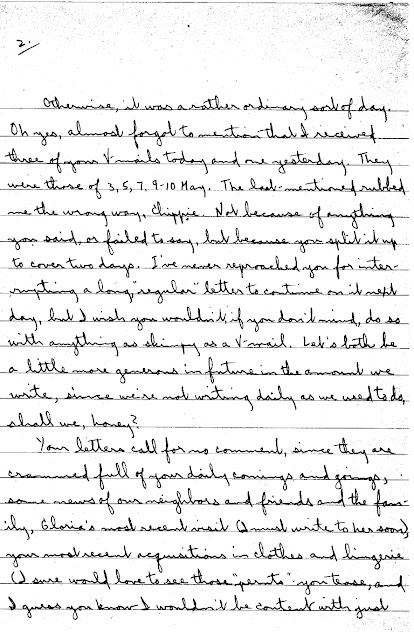 2.
Otherwise, it was a rather ordinary sort of day.
Oh yes, almost forgot to mention that I received
three of your V-mails today and one yesterday. They
were those of 3, 5, 7, 9-10 May. The last-mentioned rubbed
me the wrong way, Chippie. Not because of anything
you said, or failed to say, but because you split it up
to cover two days. I've never reproached you for inter-
rupting a long, "regular" letter to continue on it next
day, but I wish you wouldn't, if you don't mind, do so
with anything as skimpy as a V-mail. Let's both be
a little more generous in future in the amount we
write, since we're not writing daily as we used to do,
shall we, honey?
Your letters call for no comment, since they are
crammed full of your daily comings and goings,
some news of our neighbors and friends and the fam-
ily, Gloria's most recent visit (I must write to her soon),
your most recent acquisitions in clothes and lingerie
(I sure would love to see those you tease, and
I guess you know I wouldn't be content with just